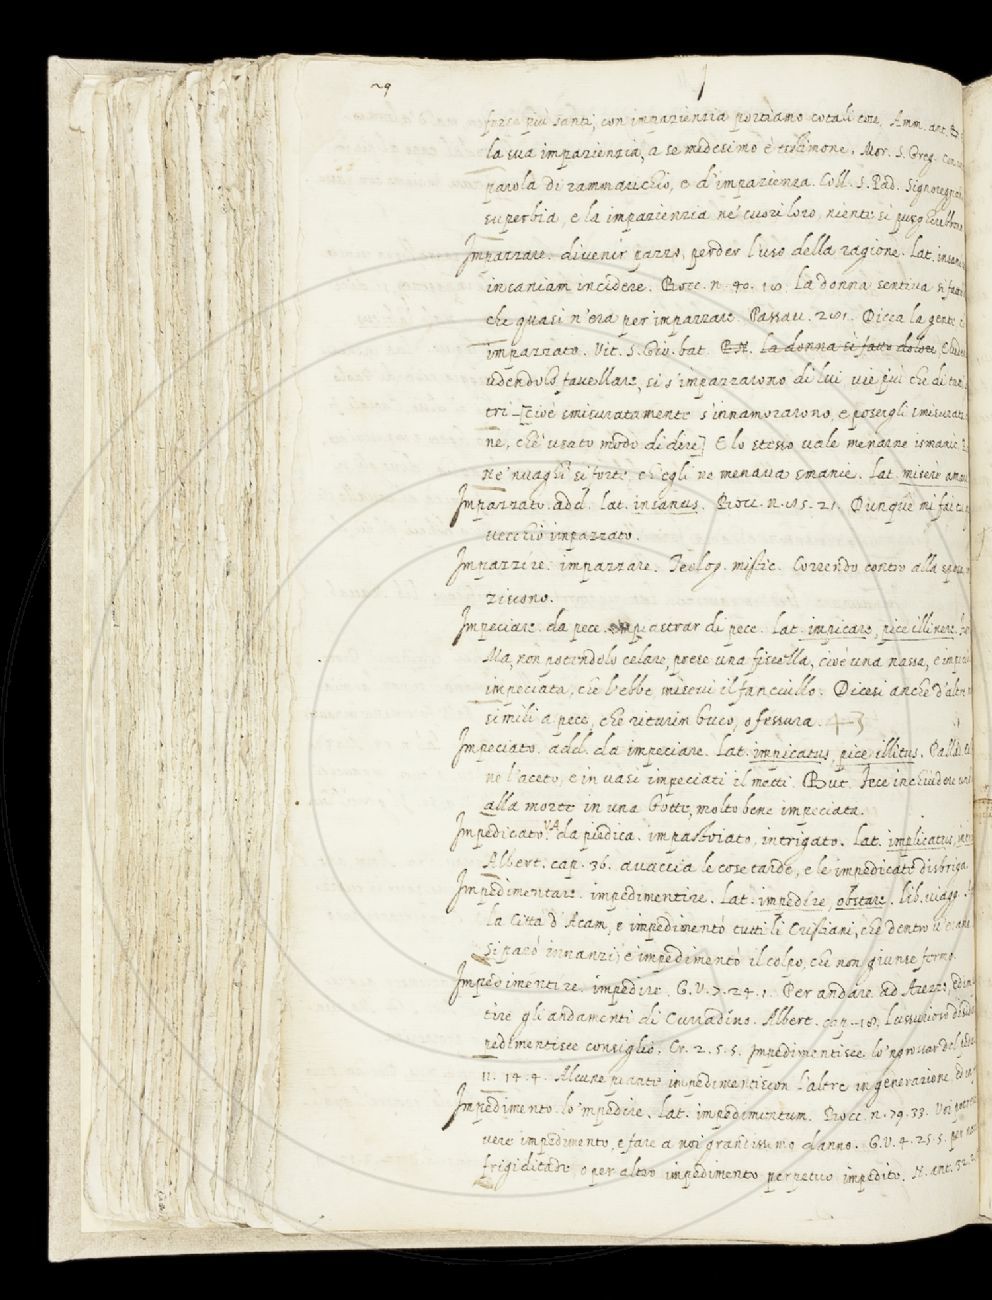 29
forse più santi, con impazienzia portiamo cotali cose. Amm. ant.
la sua impazienzia, a se medesimo è testimone. Mor. S. Greg. Con
parola di rammarichio, e d'impazienza. Coll. S. Pad. Signoreggia
superbia, e la impazienzia ne' cuori loro, niente si purgherebbono
Impazzare. divenir pazzo, perder l'uso della ragione. Lat. insanire
insaniam incidere. Bocc. n. 40. 10. La donna sentiva si fatto
che quasi n'era per impazzare. Passav. 281. Dicea la gente
impazzato. Vit. S. Gio. bat. E N. la donna sì fatto dolore
udendolo favellare, si s'impazzarono di lui, vie più che di
tri [cioè smisuratamente s'innamorarono, e posergli smisurato
ne, ch'è usato modo di dire] E lo stesso vale menarne ismanie.
ne 'nvaghì si forte, ch'egli ne menava smanie. Lat. misere
Impazzato. add. lat. insanus. Bocc. n. 85. 21. Dunque mi fai tu
vecchio impazzato.
Impazzire. impazzare. Teolog. mistic. Correndo contro alla
ziscono.
Impeciare. da pece. impiastrar di pece. Lat. impicare, pice illinere.
Ma, non potendolo celare, prese una fiscella, cioè una nassa, e
impeciata, che l'ebbe misevi il fanciullo. Dicesi anche d'altre
simili a pece, che riturin buco, o fessura.
Impeciato. add. da impeciare. Lat. impicatus, pice illitus. Pallad.
ne l'aceto, e in vasi impeciati il metti. But. Fece inchiudere
alla morte in una botte, molto bene impeciata.
Impedicato. V.A. da piedica. impastoiato, intrigato. Lat. implicatus,
Albert. cap. 36. avaccia le cose tarde, e le impedicate disbriga
Impedimentare. impedimentire. Lat. impedire, obstare. lib. viagg.
la Città d'Acam, e impedimentò tutti li Cristiani, che dentro v'erano
Si parò innanzi, e impedimentò il colpo, che non giunse fermo.
Impedimentire. impedire. G. V. 7. 24. 1. Per andare ad Arezzo,
tire gli andamenti di Curradino. Albert. cap. 18. Lussurioso
pedimentisce consiglio. Cr. 2. 5. 5. Impedimentisce lo 'ngrossar del
11. 14. 4. Alcune piante impedimentiscon l'altre in generazione,
Impedimento. lo 'mpedire. Lat. impedimentum. Bocc. n. 79. 33. Voi
vere impedimento, e fare a noi grandissimo danno. G. V. 4. 25. 5. per
frigiditade, o per altro impedimento perpetuo impedito. N. ant. 32. 2.